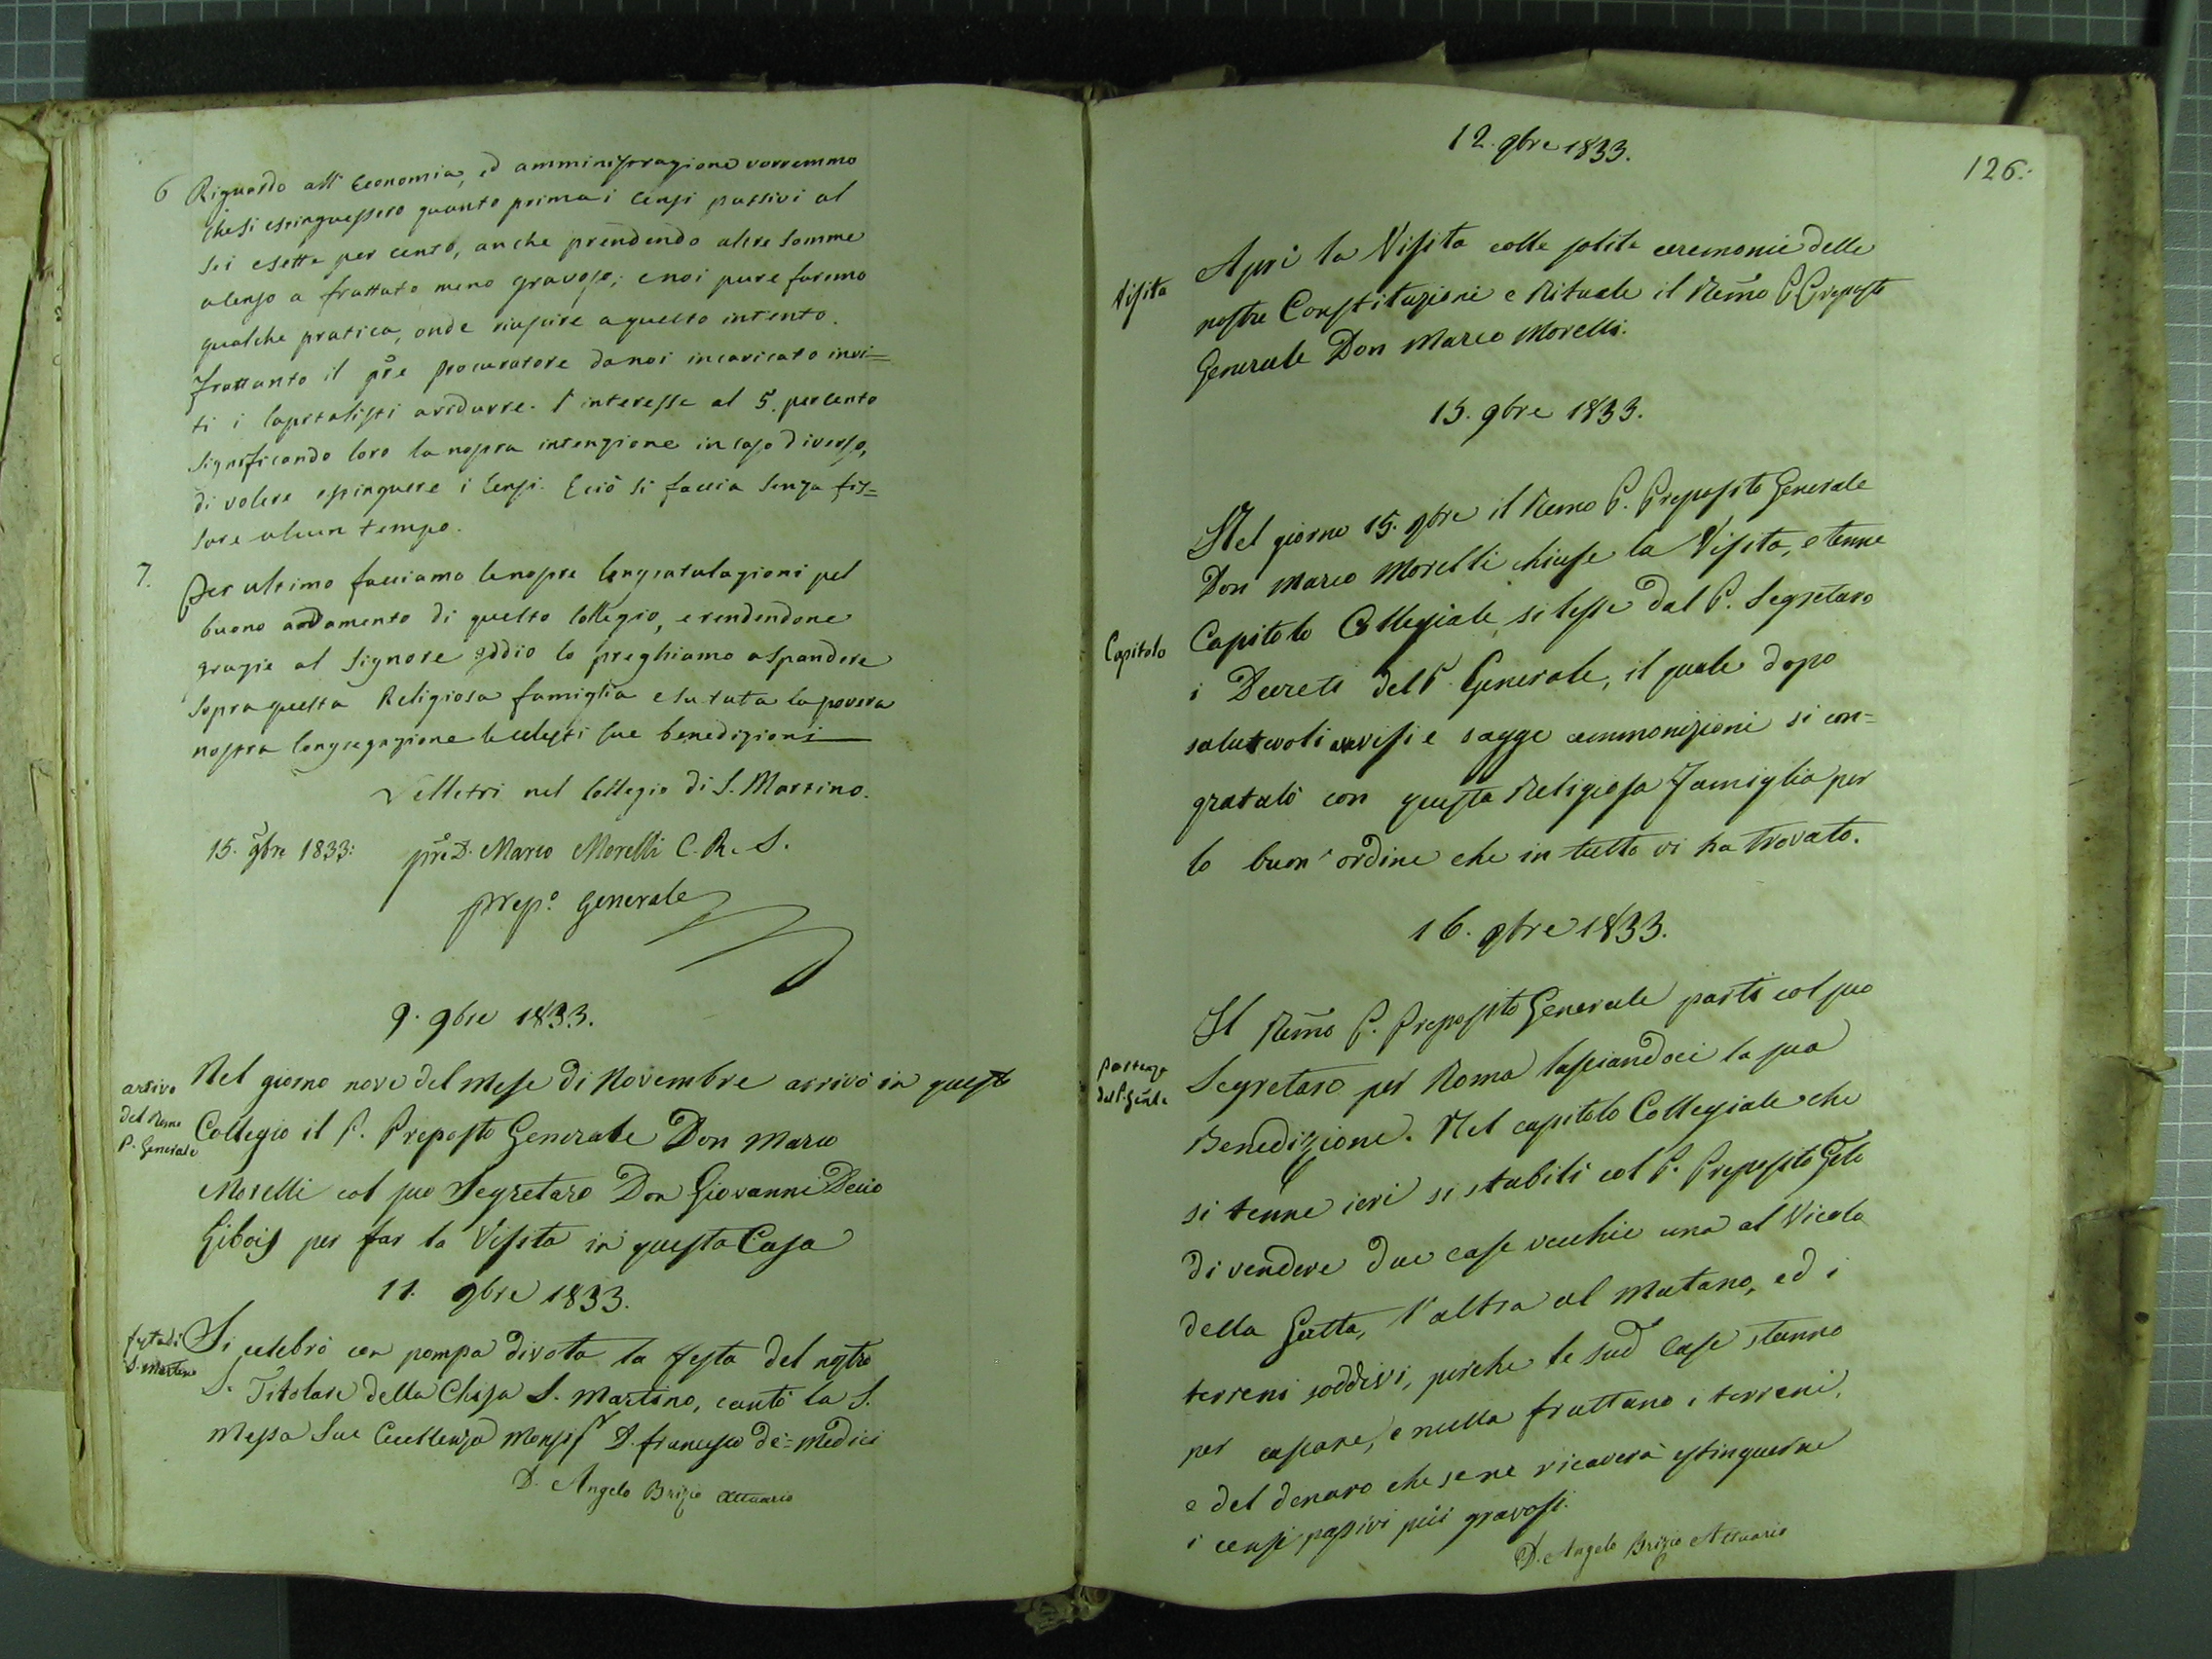 6 Riguardo all' Economia, ed amministrazione vorremmo
che si estinguessero quanto prima i Censi passivi al
sei e sette per cento, anche prendendo altre somme
a censo a fruttato meno gravoso; e noi pure faremo
qualche pratica, onde riuscire a questo intento.
Frattanto il pre Procuratore da noi incaricato invi=
ti i Capitalisti a ridurre l'interesse al 5. per cento
significando loro la nostra intenzione in caso diverso,
di volere estinguere i Censi. E ciò si faccia senza fis=
sare alcun tempo.
7. Per ultimo facciamo le nostre Congratulazioni pel
buono andamento di questo Collegio, e rendendone
grazie al Signore Iddio lo preghiamo a spandere
sopra questa Religiosa famiglia e su tuta la povera
nostra Congregazione le celesti sue benedizioni
Velletri nel Collegio di S. Martino.
15. 9bre 1833: pre D. Marco Morelli C. R. S.
prep.o Generale
9. 9bre 1833.
arrivo
del Rmo
P. Generale
Nel giorno nove del mese di Novembre arrivò in questo
Collegio il P. Preposto Generale Don Marco
Morelli col suo Segretaro Don Giovanni Decio
Libois per far la Visita in questa Casa
11. 9bre 1833.
festa di
S. Martino
Si celebrò con pompa divota la festa del nostro
S. Titolare della Chiesa S. Martino, cantò la S.
Messa Sua Eccellenza Monsigr D. Francesco de= Medici
D. Angelo Brizio Attuario
126.
12. 9bre 1833.
Visita
Aprì la Visita colle solite ceremonie delle
nostre Constituzioni e Rituale il Rmo P. Preposto
Generale Don Marco Morelli.
15. 9bre 1833.
Nel giorno 15. 9bre il Rmo P. Preposito Generale
Don Marco Morelli chiuse la Visita, e tenne
Capitolo
Capitolo Collegiale, si lesse dal P. Segretaro
i Decreti del P. Generale, il quale dopo
salutevoli avvisi e sagge ammonizioni si con=
gratulò con questa Religiosa Famiglia per
lo buon' ordine che in tutto vi ha trovato.
16. 9bre 1833.
Il Rmo P. Preposito Generale partì col suo
Partenza
del P. Gnle
Segretaro per Roma lasciandoci la sua
Benedizione. Nel capitolo Collegiale che
si tenne ieri si stabilì col P. Preposito Gnle
di vendere due case vecchie una al Vicolo
della Gatta, l'altra al Matano, ed i
terreni soddivi, perche le sud case stanno
per cascare, e nulla fruttano i terreni,
e del denaro che se ne ricaverà estinguerne
i censi passivi più gravosi.
D. Angelo Brizio Attuario